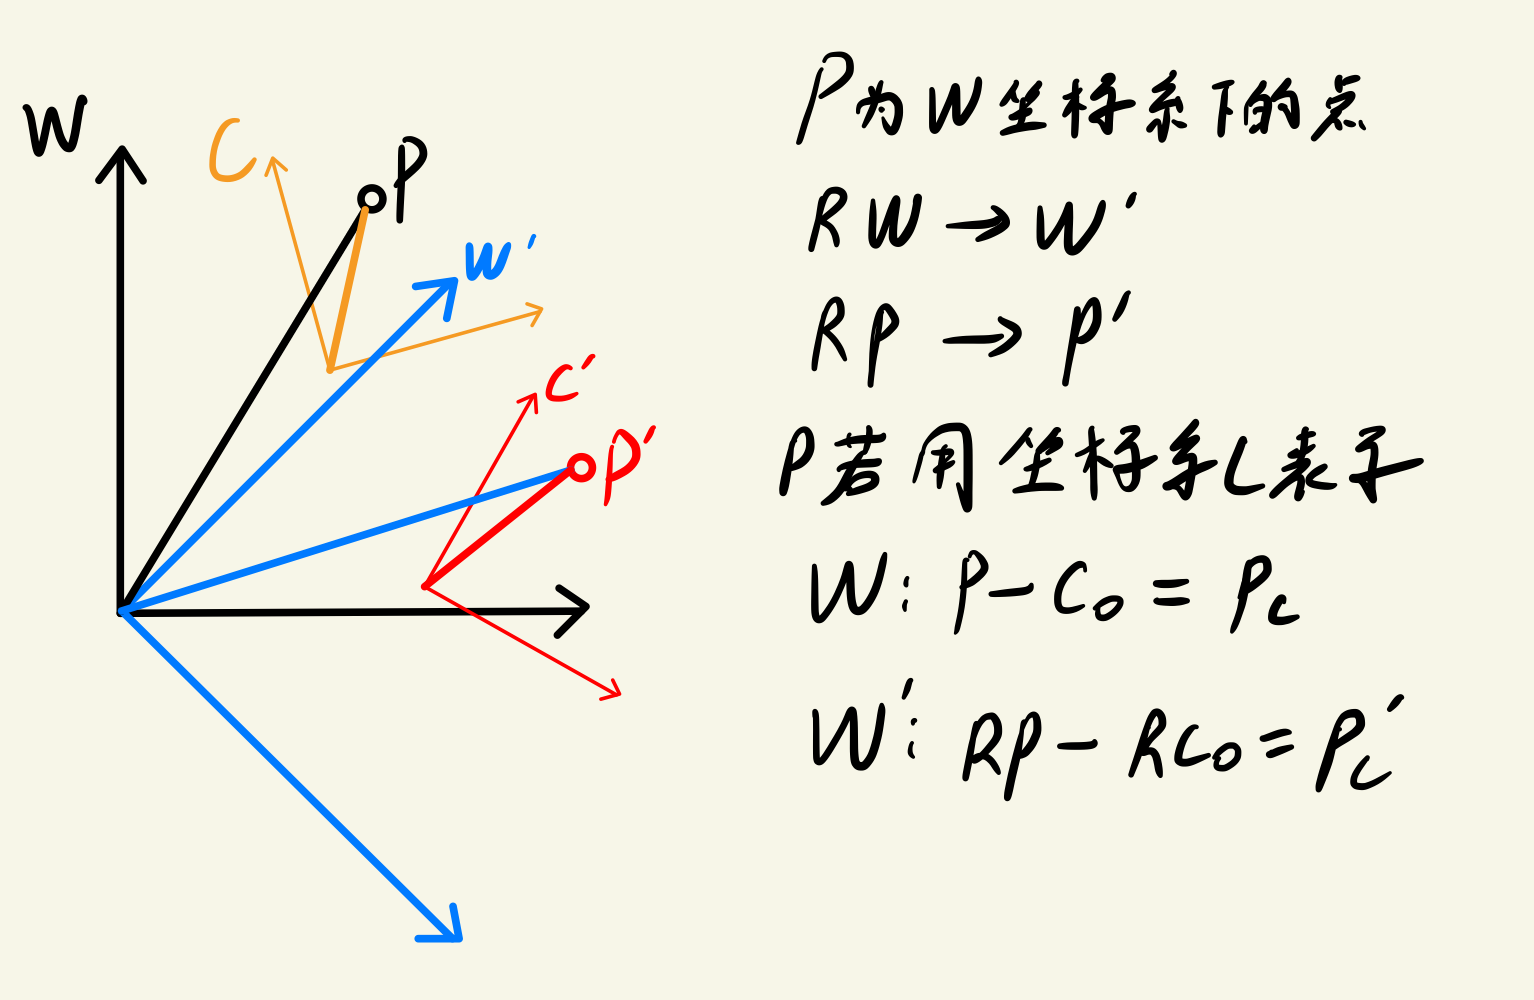 W
C
P
w'
c'
p'
P为W坐标系下的点
RW→W'
RP→P'
P若用坐标系C表示
W: P-C₀=Pc
W': RP-RC₀=Pc'